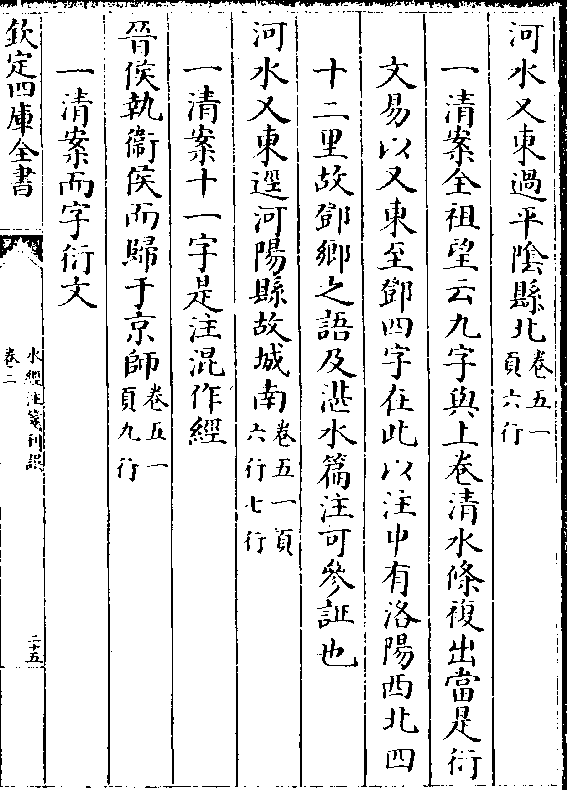 河水又東過平陰縣北卷五一頁六行
一清案全祖望云九字與上卷清水條複出當是衍
文易以又東至鄧四字在此以注中有洛陽西北四
十二里故鄧鄉之語及湛水篇注可參証也
河水又東逕河陽縣故城南卷五一頁六行七行
一清案十一字是注混作經
晉侯執衞侯而歸于京師卷五一頁九行
一清案而字衍文
欽定四庫全書
水經注箋刊誤
卷二
二十五